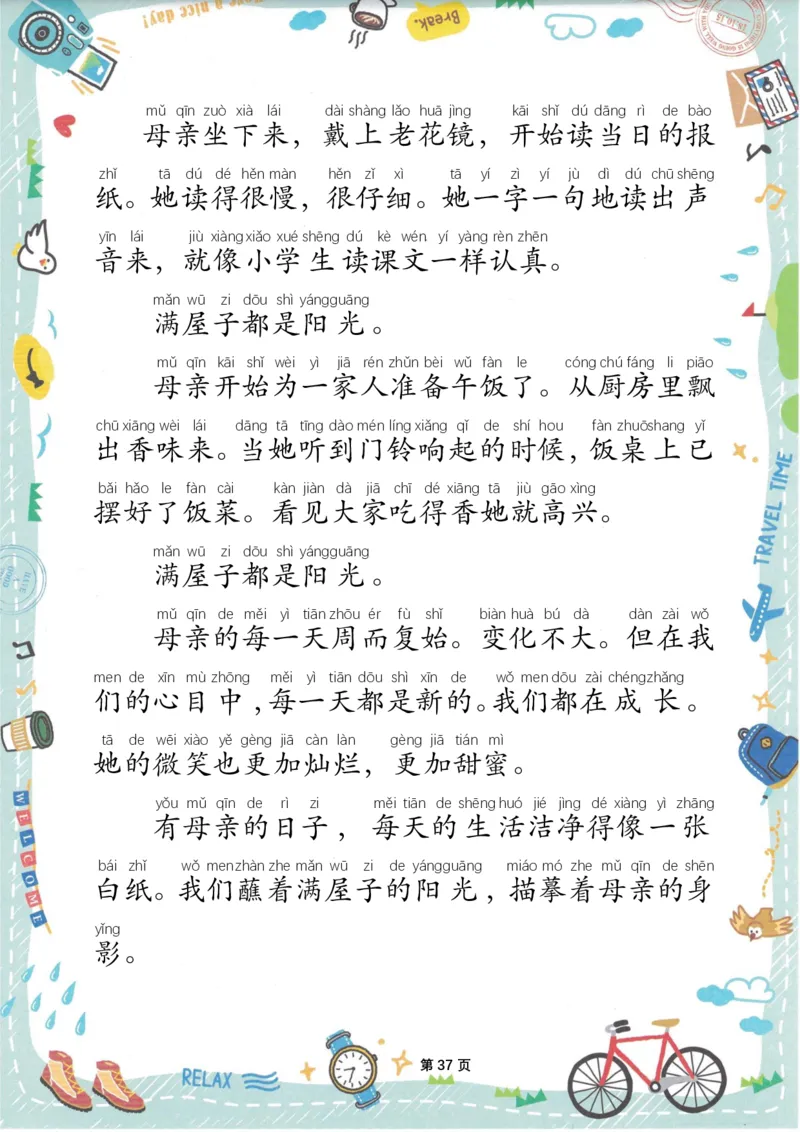 Have a nice day!
Break.
18.10.15
mǔ qīn zuò xià lái dài shàng lǎo huā jìng kāi shǐ dú dāng rì de bào
母亲坐下来，戴上老花镜，开始读当日的报
zhǐ tā dú dé hěn màn hěn zǐ xì tā yí zì yí jù dì dú chū shēng
纸。她读得很慢，很仔细。她一字一句地读出声
yīn lái jiù xiàng xiǎo xué shēng dú kè wén yí yàng rèn zhēn
音来，就像小学生读课文一样认真。
mǎn wū zi dōu shì yángguāng
满屋子都是阳光。
mǔ qīn kāi shǐ wèi yì jiā rén zhǔn bèi wǔ fàn le cóng chú fáng li piāo
母亲开始为一家人准备午饭了。从厨房里飘
chū xiāng wèi lái dāng tā tīng dào mén líng xiǎng qǐ de shí hou fàn zhuōshang yǐ
出香味来。当她听到门铃响起的时候，饭桌上已
bǎi hǎo le fàn cài kàn jiàn dà jiā chī dé xiāng tā jiù gāo xìng
摆好了饭菜。看见大家吃得香她就高兴。
mǎn wū zi dōu shì yángguāng
满屋子都是阳光。
mǔ qīn de měi yì tiān zhōu ér fù shǐ biàn huà bú dà dàn zài wǒ
母亲的每一天周而复始。变化不大。但在我
men de xīn mù zhōng měi yì tiān dōu shì xīn de wǒ men dōu zài chéngzhǎng
们的心目中，每一天都是新的。我们都在成长。
tā de wēi xiào yě gèng jiā càn làn gèng jiā tián mì
她的微笑也更加灿烂，更加甜蜜。
yǒu mǔ qīn de rì zi měi tiān de shēng huó jié jìng dé xiàng yì zhāng
有母亲的日子，每天的生活洁净得像一张
bái zhǐ wǒ men zhàn zhe mǎn wū zi de yángguāng miáo mó zhe mǔ qīn de shēn
白纸。我们蘸着满屋子的阳光，描摹着母亲的身
yǐng
影。
TRAVEL TIME
WELCOME
RELAX
第 37 页